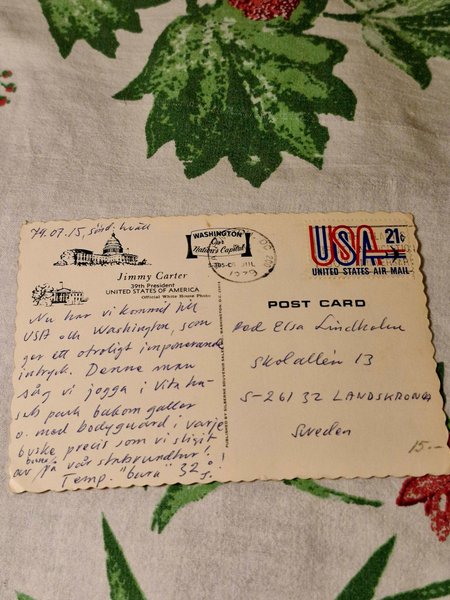 79.07.15, sönd. kväll
WASHINGTON
Our
Nation's Capital
DC
JUL
1979
USA 21c
UNITED STATES AIR MAIL
Jimmy Carter
39th President
UNITED STATES OF AMERICA
Official White House Photo
POST CARD
Nu har vi kommit till
USA och Washington, som
ger ett otroligt imponerande
intryck. Denne man
såg vi jogga i Vita hu-
sets park bakom galler
o. med bodyguard i varje
buske precis som vi
bara på vår
Temp. "bara" 32°!
Elsa Lindholm
Skolallén 13
S-261 32 LANDSKRONA
Sweden
15.-